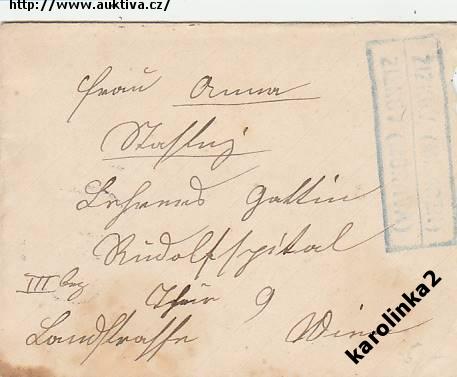 http://www.auktiva.cz/
Frau Anna
Stastny
Lehrers Gattin
Rudolfspital
III Bez
Thür 9
Landstrasse Wien
karolinka2